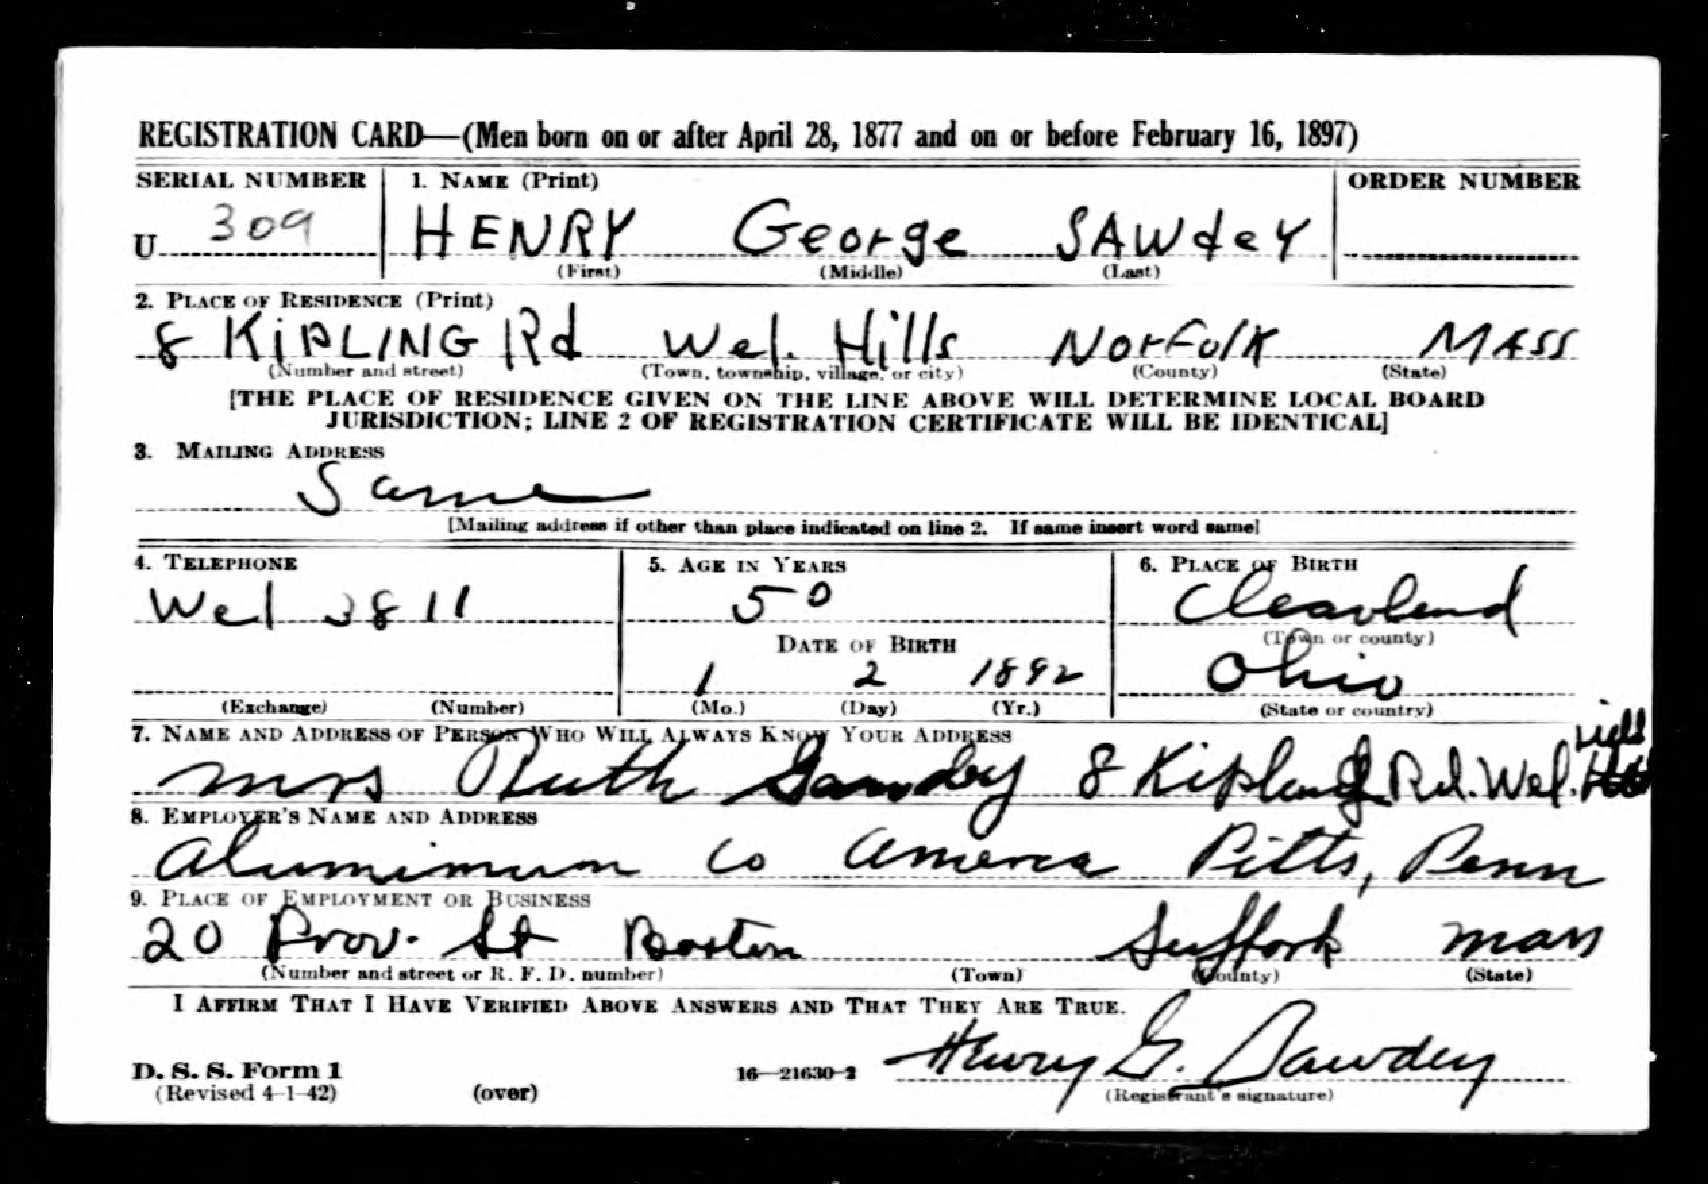 REGISTRATION CARD—(Men born on or after April 28, 1877 and on or before February 16, 1897)
SERIAL NUMBER
1. NAME (Print)
ORDER NUMBER
U 309
HENRY George SAWdeY
(First) (Middle) (Last)
2. PLACE OF RESIDENCE (Print)
8 KiPLING Rd Wel. Hills NorFolk MASS
(Number and street) (Town, township, village, or city) (County) (State)
[THE PLACE OF RESIDENCE GIVEN ON THE LINE ABOVE WILL DETERMINE LOCAL BOARD
JURISDICTION; LINE 2 OF REGISTRATION CERTIFICATE WILL BE IDENTICAL]
3. MAILING ADDRESS
Same
[Mailing address if other than place indicated on line 2. If same insert word same]
4. TELEPHONE
5. AGE IN YEARS
6. PLACE OF BIRTH
Wel 3811
50
Cleavlend
DATE OF BIRTH
(Town or county)
1 2 1892
Ohio
(Exchange) (Number)
(Mo.) (Day) (Yr.)
(State or country)
7. NAME AND ADDRESS OF PERSON WHO WILL ALWAYS KNOW YOUR ADDRESS
Mrs Ruth Sawdey 8 Kipling Rd. Wel.
8. EMPLOYER'S NAME AND ADDRESS
Aluminum Co America Pitts, Penn
9. PLACE OF EMPLOYMENT OR BUSINESS
20 Prov. St Boston Suffork Mass
(Number and street or R. F. D. number) (Town) (County) (State)
I AFFIRM THAT I HAVE VERIFIED ABOVE ANSWERS AND THAT THEY ARE TRUE.
Henry G. Sawdey
D. S. S. Form 1
(Revised 4-1-42) (over) 16—21630-2 (Registrant's signature)